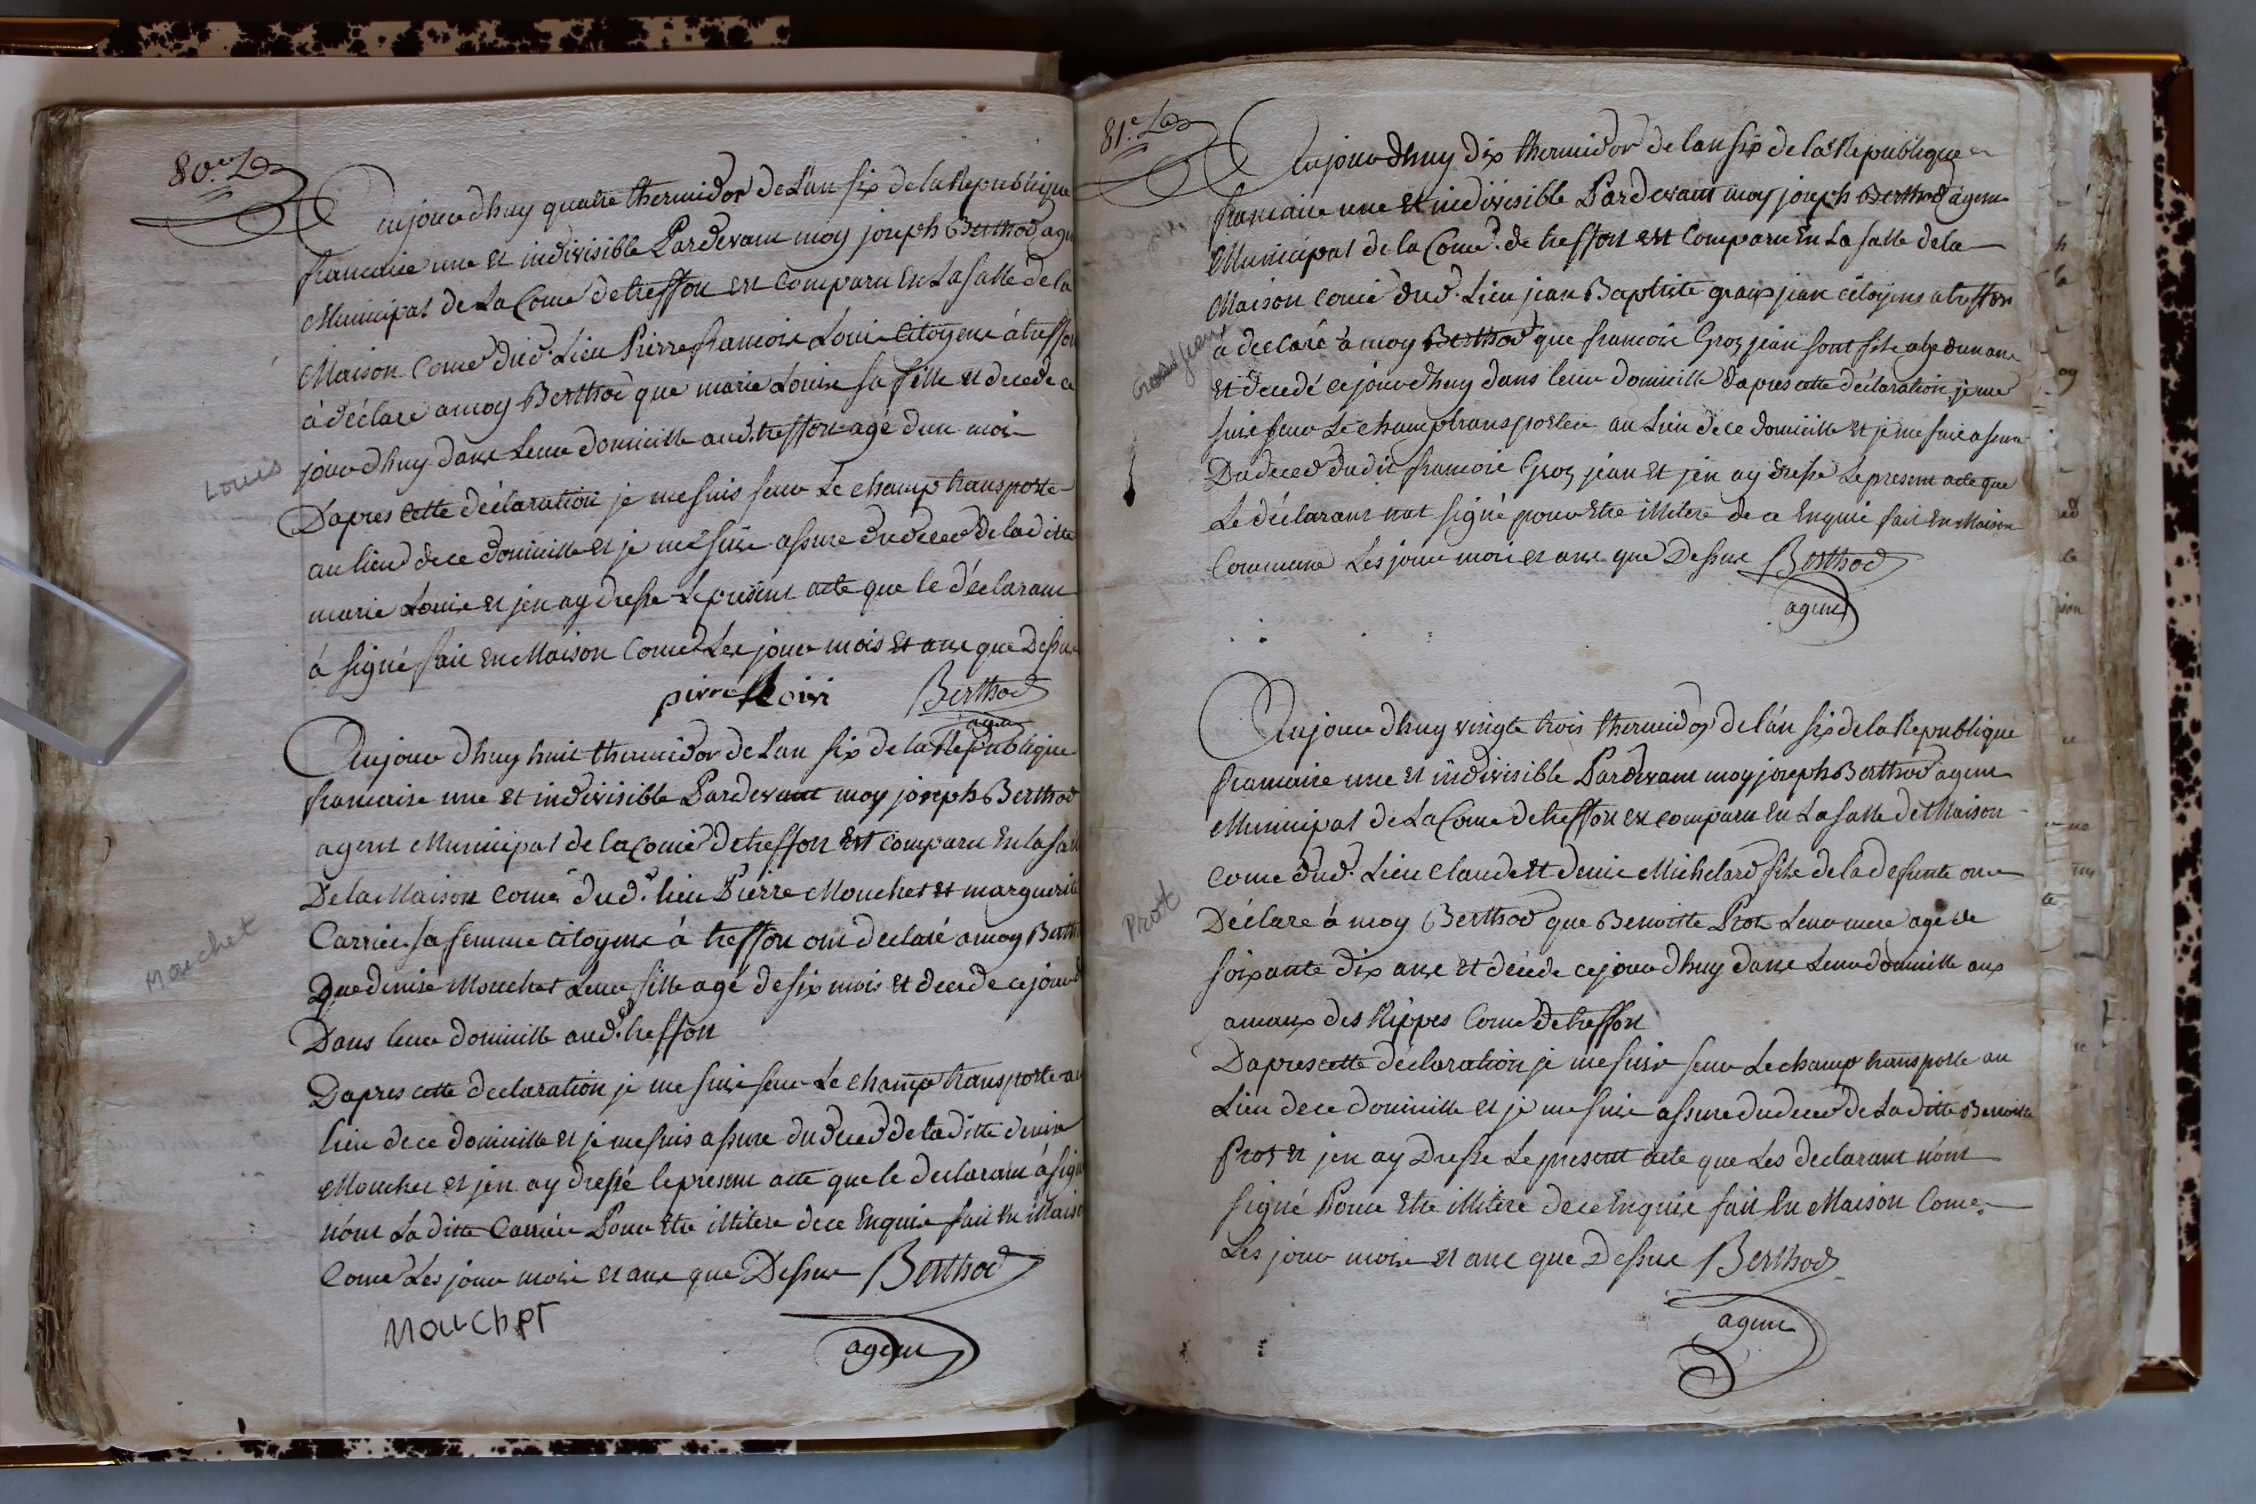 80.e
Aujourdhuy quatre thermidor de L'an six de la Republique
francaise une et indivisible Pardevant moy joseph Berthod agen
Municipal de La Come de treffon est Comparu En La Salle de la
Maison Come dud. Lieu Pierre francois Louis Citoyens à treffon
à déclaré a moy Berthod que marie Louise sa fille et decede ce
jourdhuy dans Leur domicille aud. treffon agé dun mois
D'apres Cette déclaration je me suis sour Le champ transporte
au lieu de ce domicille et je me suis assure du deces de la ditte
marie Louise et jen ay dresse Le présent acte que le déclarant
à signé fait en Maison Come Les jour mois et ans que Dessus
pierre Loivi Berthod
agen
Louis
Aujour dhuy huit thermidor de L'an six de la Republique
francaise une et indivisible Pardevant moy joseph Berthod
agent Municipal de la Come de treffon est comparu En la sall
De la Maison Come dud. lieu Pierre Mouchet et marguerite
Carrier sa femme Citoyens à treffon ont declaré a moy Berth
Que denise Mouchet Leur fille agé de six mois et decede ce jourd
Dans leur domicille aud. treffon
D'apres cette declaration je me suis sour Le champ transporte au
lieu de ce domicille et je me suis assure du deces de la ditte denise
Mouchet et jen ay dressé le present acte que le declarant à sign
n'ont La ditte Carrier Pour Etre illitere de ce Enquis fait En Maiso
Come Les jour mois et ans que Dessus Berthod
MOUCHET
agent
Mouchet
81.e
Aujourdhuy dix thermidor de lan six de la Republique
francaise une et indivisible Pardevant moy joseph Berthod agent
Municipal de la Come. de treffon est Comparu En La salle de la
Maison Come dud. Lieu jean Baptiste gros jean citoyens a treffon
à declaré à moy Berthod que francois Groz jean sont fils age dun ans
et decedé ce jourdhuy dans leur domicille d'apres cette déclaration je me
suis sour Le champ transportee au Lieu de ce domicille et je me suis assure
Du deces dudit francois Groz jean et jen ay dressé Le present acte que
Le déclarant nat signé pour Etre illitere de ce Enquis fait En Maison
Commune Les jour mois et ans que Dessus Berthod
agent
Grosjean
Aujourdhuy vingt trois thermidor de l'an six de la Republique
francaise une et indivisible Pardevant moy joseph Berthod agent
Municipal de La Come de treffon est comparu En La salle de Maison
Come dud. Lieu Claude et denis Michelard fils de la defunte ont
Déclare à moy Berthod que Benoitte Prot Leur mere agé de
soixante dix ans et decede ce jourdhuy dans Leur domicille aux
amaux des Rippes Come de treffon
D'apres cette déclaration je me suis sour Le champ transporte au
Lieu de ce domicille et je me suis assure du deces de La ditte Benoitte
Prot et jen ay Dresse Le present acte que Les declarant n'ont
signé Pour Etre illitere de ce Enquis fait En Maison Come.
Les jour mois et ans que Dessus Berthod
agent
Prott